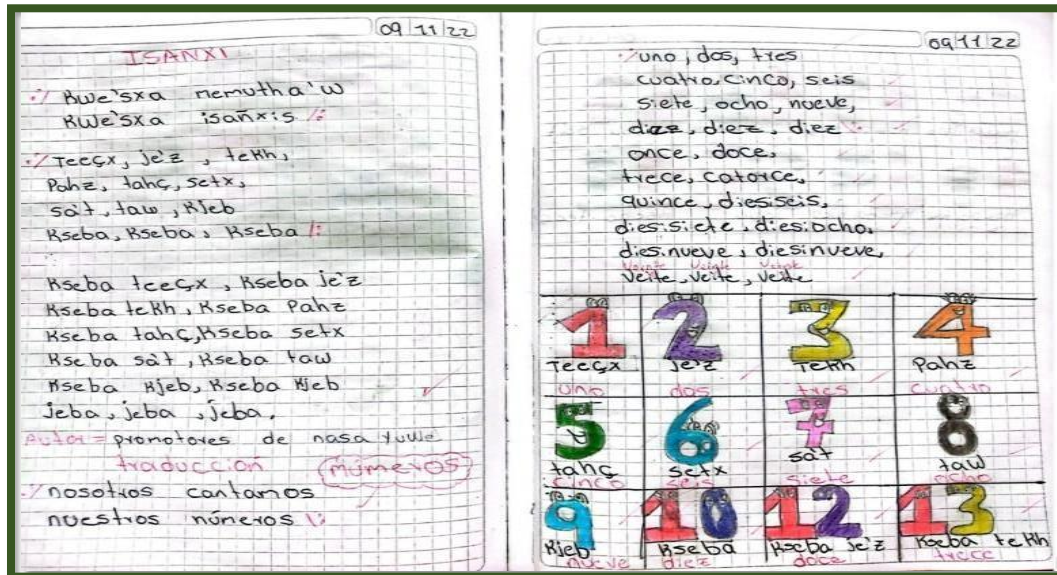 09 11 22
ISANXI
·/ Kwe'sxa nemutha'w
Kwe'sxa isañxis /:
·/ Teeçx, je'z, tekh,
Pahz, tahç, setx,
sàt, taw, Kjeb
Kseba, Kseba, Kseba /:
Kseba teeçx, Kseba je'z
Kseba tekh, Kseba Pahz
Kseba tahç, Kseba setx
Kseba sàt, Kseba taw
Kseba Kjeb, Kseba Kjeb
jeba, jeba, jeba.
Autor = promotores de nasa yuwe
traducción (números)
·/ nosotros cantamos
nuestros números \:
09 11 22
·/ uno, dos, tres
cuatro, cinco, seis
siete, ocho, nueve,
diez, diez, diez \:
once, doce,
trece, catorce,
quince, diesiseis,
diesisiete, diesiocho,
diesinueve, diesinueve,
veite, veite, veite
1 2 3 4
Teeçx Je'z Tekh Pahz
uno dos tres cuatro
5 6 7 8
tahç setx sàt taw
cinco seis siete ocho
9 10 12 13
Kjeb Kseba Kseba je'z Kseba tekh
nueve diez doce trece